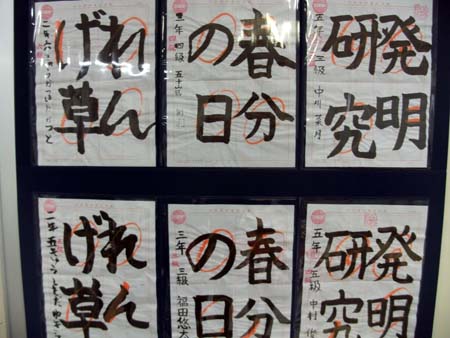 発明
研究
五年 三級 中川 菜月
春分
の日
三年 四級 五十嵐
れん
げ草
二年 六きゅう
発明
研究
五年 五級 中村
春分
の日
三年 三級 福田悠太
れん
げ草
二年 五きゅう